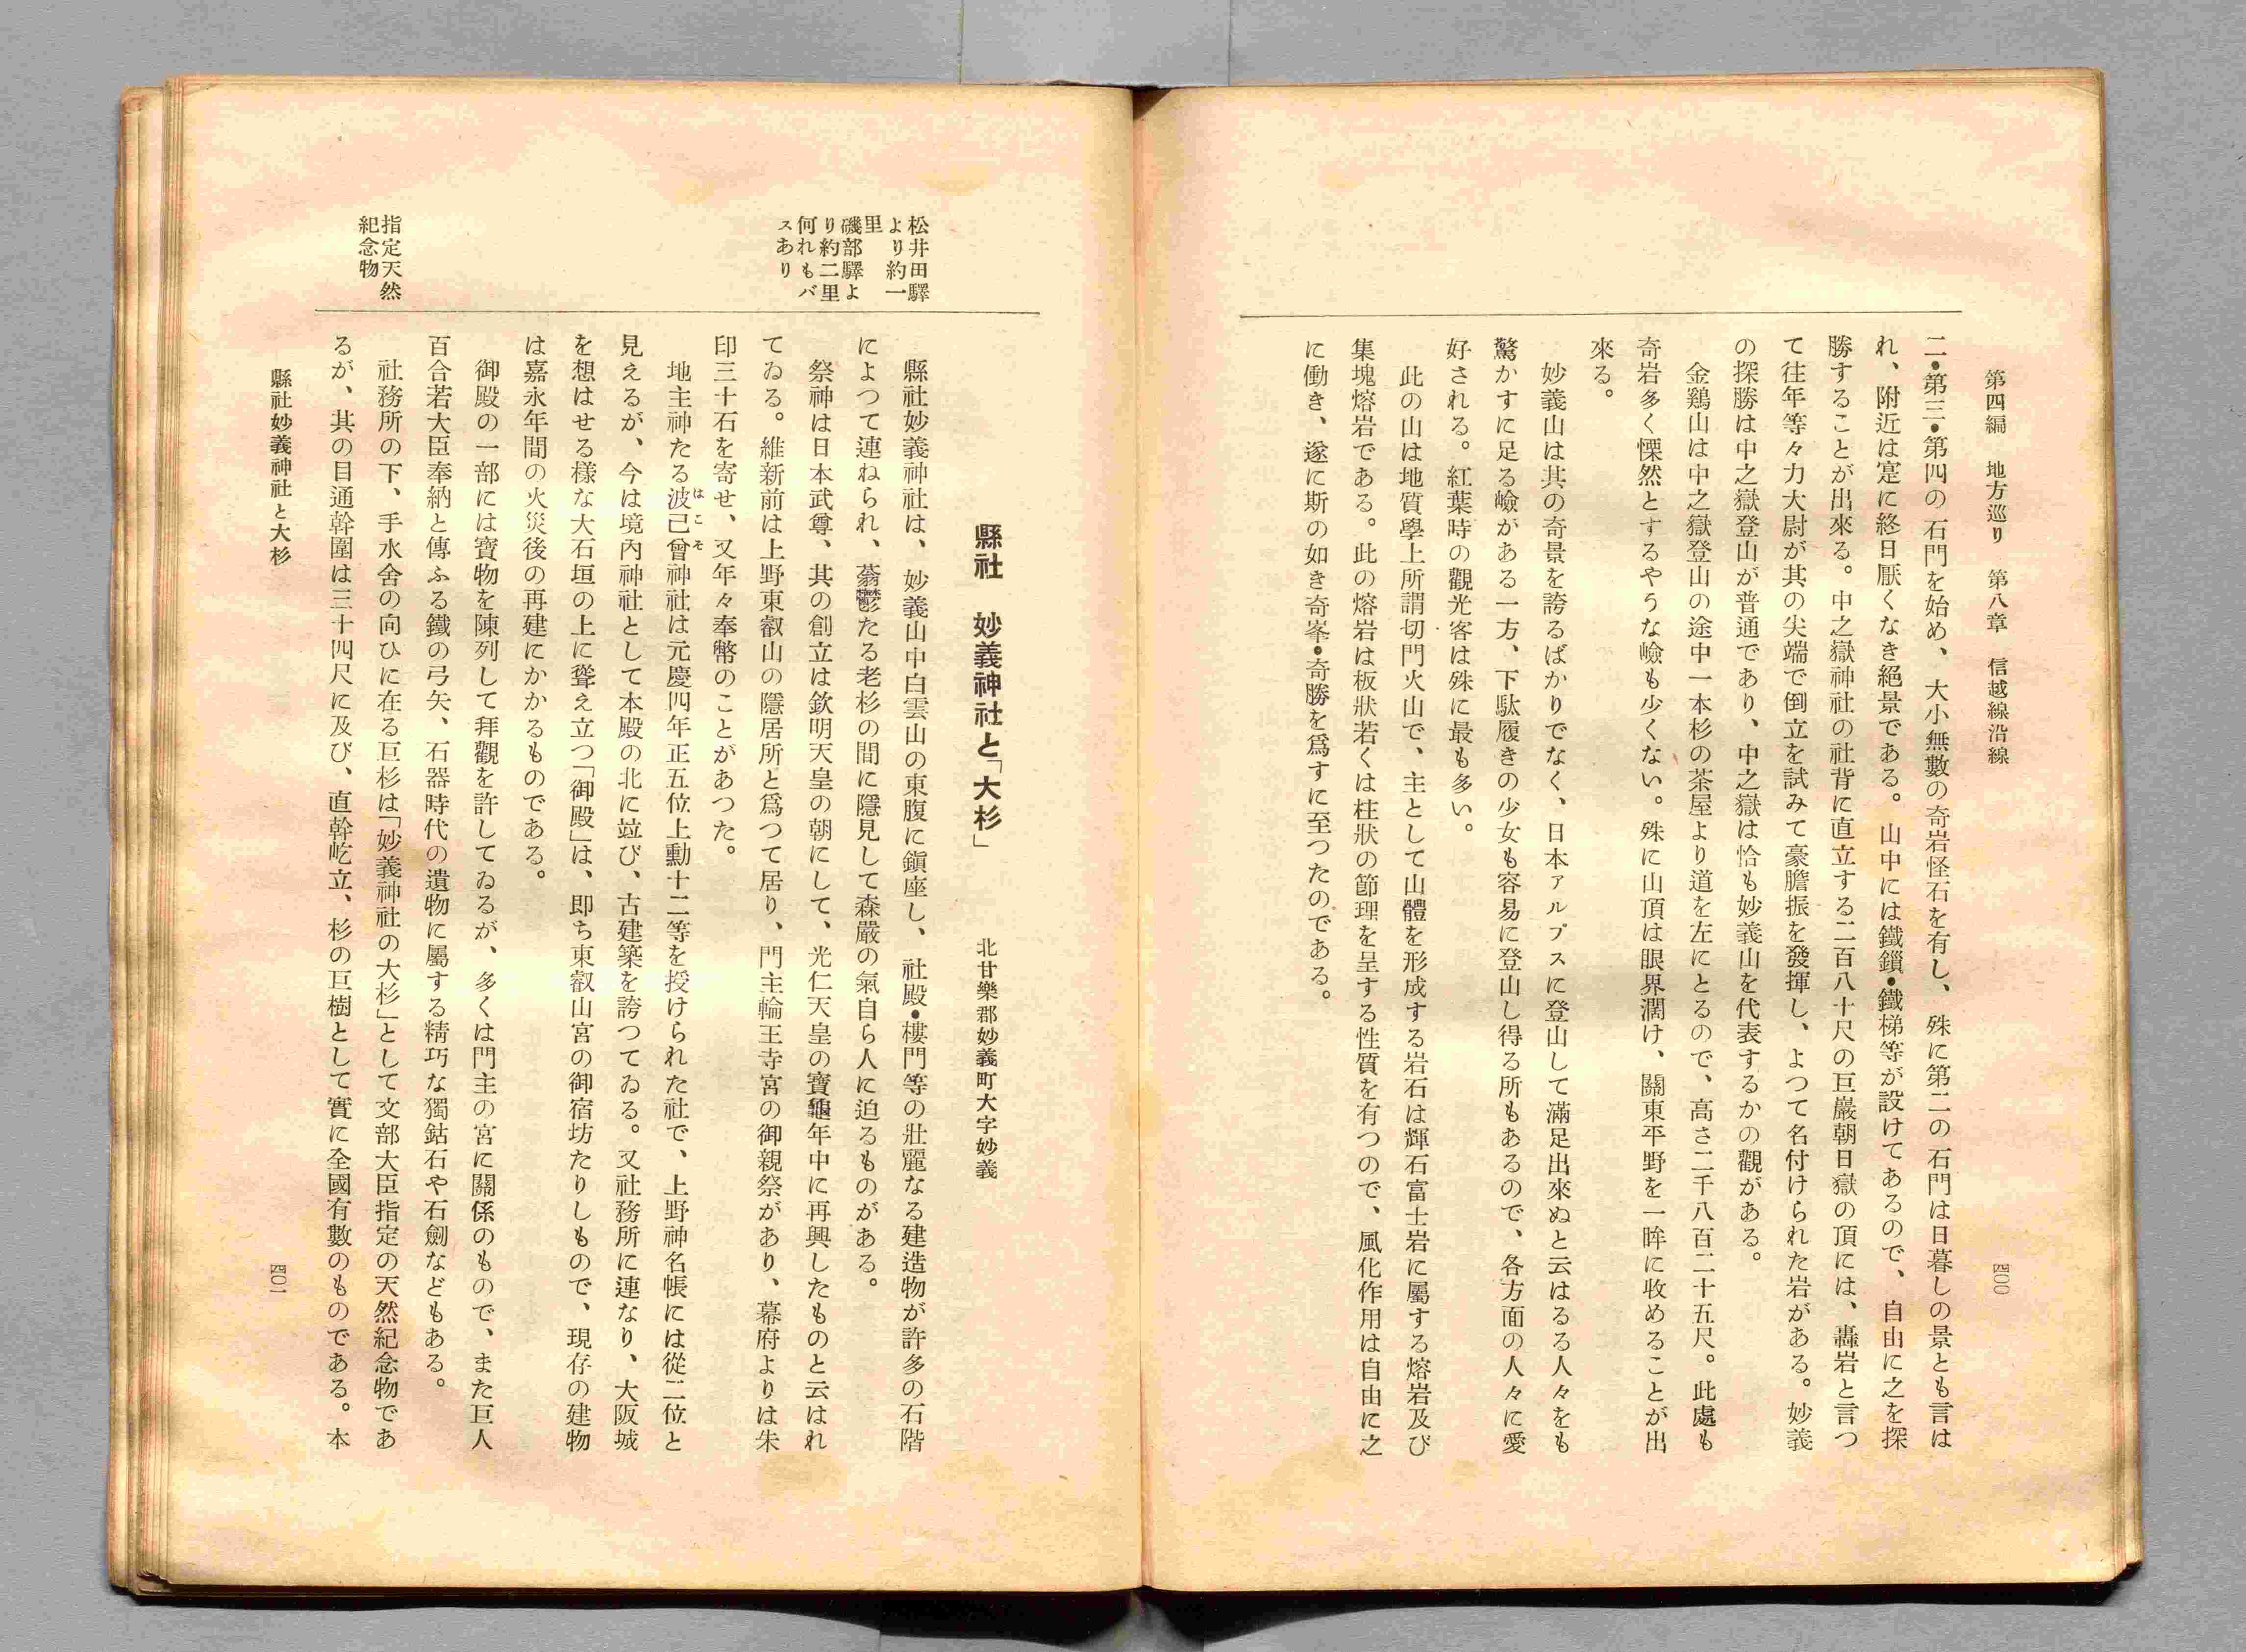 第四編　地方巡り　第八章　信越線沿線
四〇〇
二・第三・第四の石門を始め、大小無數の奇岩怪石を有し、殊に第二の石門は日暮しの景とも言は
れ、附近は寔に終日厭くなき絕景である。山中には鐵鎖・鐵梯等が設けてあるので、自由に之を探
勝することが出來る。中之嶽神社の社背に直立する二百八十尺の巨巖朝日嶽の頂には、轟岩と言つ
て往年等々力大尉が其の尖端で倒立を試みて豪膽振を發揮し、よつて名付けられた岩がある。妙義
の探勝は中之嶽登山が普通であり、中之嶽は恰も妙義山を代表するかの觀がある。
金鷄山は中之嶽登山の途中一本杉の茶屋より道を左にとるので、高さ二千八百二十五尺。此處も
奇岩多く慄然とするやうな嶮も少くない。殊に山頂は眼界濶け、關東平野を一眸に收めることが出
來る。
妙義山は其の奇景を誇るばかりでなく、日本アルプスに登山して滿足出來ぬと云はるる人々をも
驚かすに足る嶮がある一方、下駄履きの少女も容易に登山し得る所もあるので、各方面の人々に愛
好される。紅葉時の觀光客は殊に最も多い。
此の山は地質學上所謂切門火山で、主として山體を形成する岩石は輝石富士岩に屬する熔岩及び
集塊熔岩である。此の熔岩は板狀若くは柱狀の節理を呈する性質を有つので、風化作用は自由に之
に働き、遂に斯の如き奇峯・奇勝を爲すに至つたのである。
縣社　妙義神社と「大杉」
北甘樂郡妙義町大字妙義
松井田驛
より約一
里
磯部驛よ
り約二里
何れもバ
スあり
縣社妙義神社は、妙義山中白雲山の東腹に鎭座し、社殿・樓門等の壯麗なる建造物が許多の石階
によつて連ねられ、蓊鬱たる老杉の間に隱見して森嚴の氣自ら人に迫るものがある。
祭神は日本武尊、其の創立は欽明天皇の朝にして、光仁天皇の寶龜年中に再興したものと云はれ
てゐる。維新前は上野東叡山の隱居所と爲つて居り、門主輪王寺宮の御親祭があり、幕府よりは朱
印三十石を寄せ、又年々奉幣のことがあつた。
地主神たる波己曾神社は元慶四年正五位上勳十二等を授けられた社で、上野神名帳には從二位と
はこそ
見えるが、今は境內神社として本殿の北に竝び、古建築を誇つてゐる。又社務所に連なり、大阪城
を想はせる樣な大石垣の上に聳え立つ「御殿」は、卽ち東叡山宮の御宿坊たりしもので、現存の建物
は嘉永年間の火災後の再建にかかるものである。
御殿の一部には寶物を陳列して拜觀を許してゐるが、多くは門主の宮に關係のもので、また巨人
百合若大臣奉納と傳ふる鐵の弓矢、石器時代の遺物に屬する精巧な獨鈷石や石劍などもある。
指定天然
紀念物
社務所の下、手水舍の向ひに在る巨杉は「妙義神社の大杉」として文部大臣指定の天然紀念物であ
るが、其の目通幹圍は三十四尺に及び、直幹屹立、杉の巨樹として實に全國有數のものである。本
縣社妙義神社と大杉
四〇一